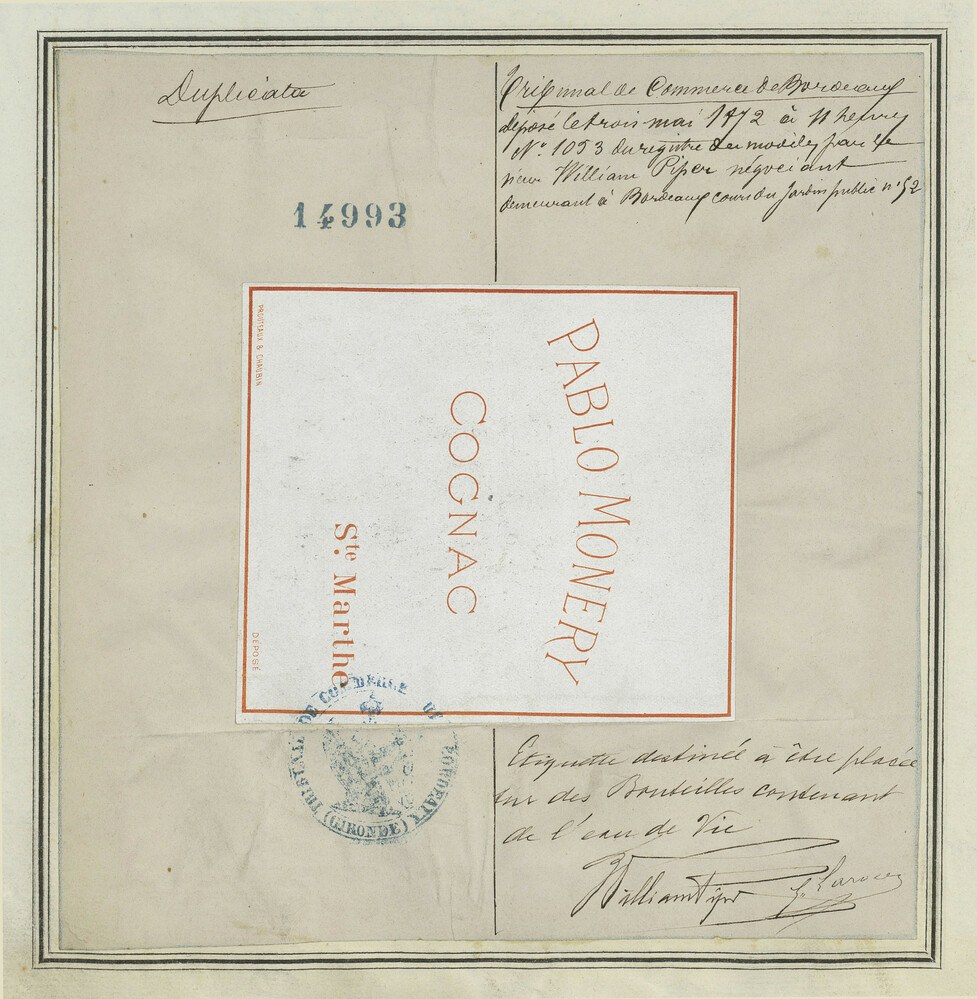 Duplicata
14993
Tribunal de Commerce de Bordeaux
déposé le trois mai 1872 à 11 heures
N° 1093 du registre des modèles par le
sieur William Piper négociant
demeurant à Bordeaux cours du Jardin public n° 52
PABLO MONERY
COGNAC
Ste Marthe
PROUTEAUX & CHAUBIN
DÉPOSÉ
TRIBUNAL DE COMMERCE DE BORDEAUX
(GIRONDE)
Etiquette destinée à être placée
sur des Bouteilles contenant
de l'eau de Vie
William Piper